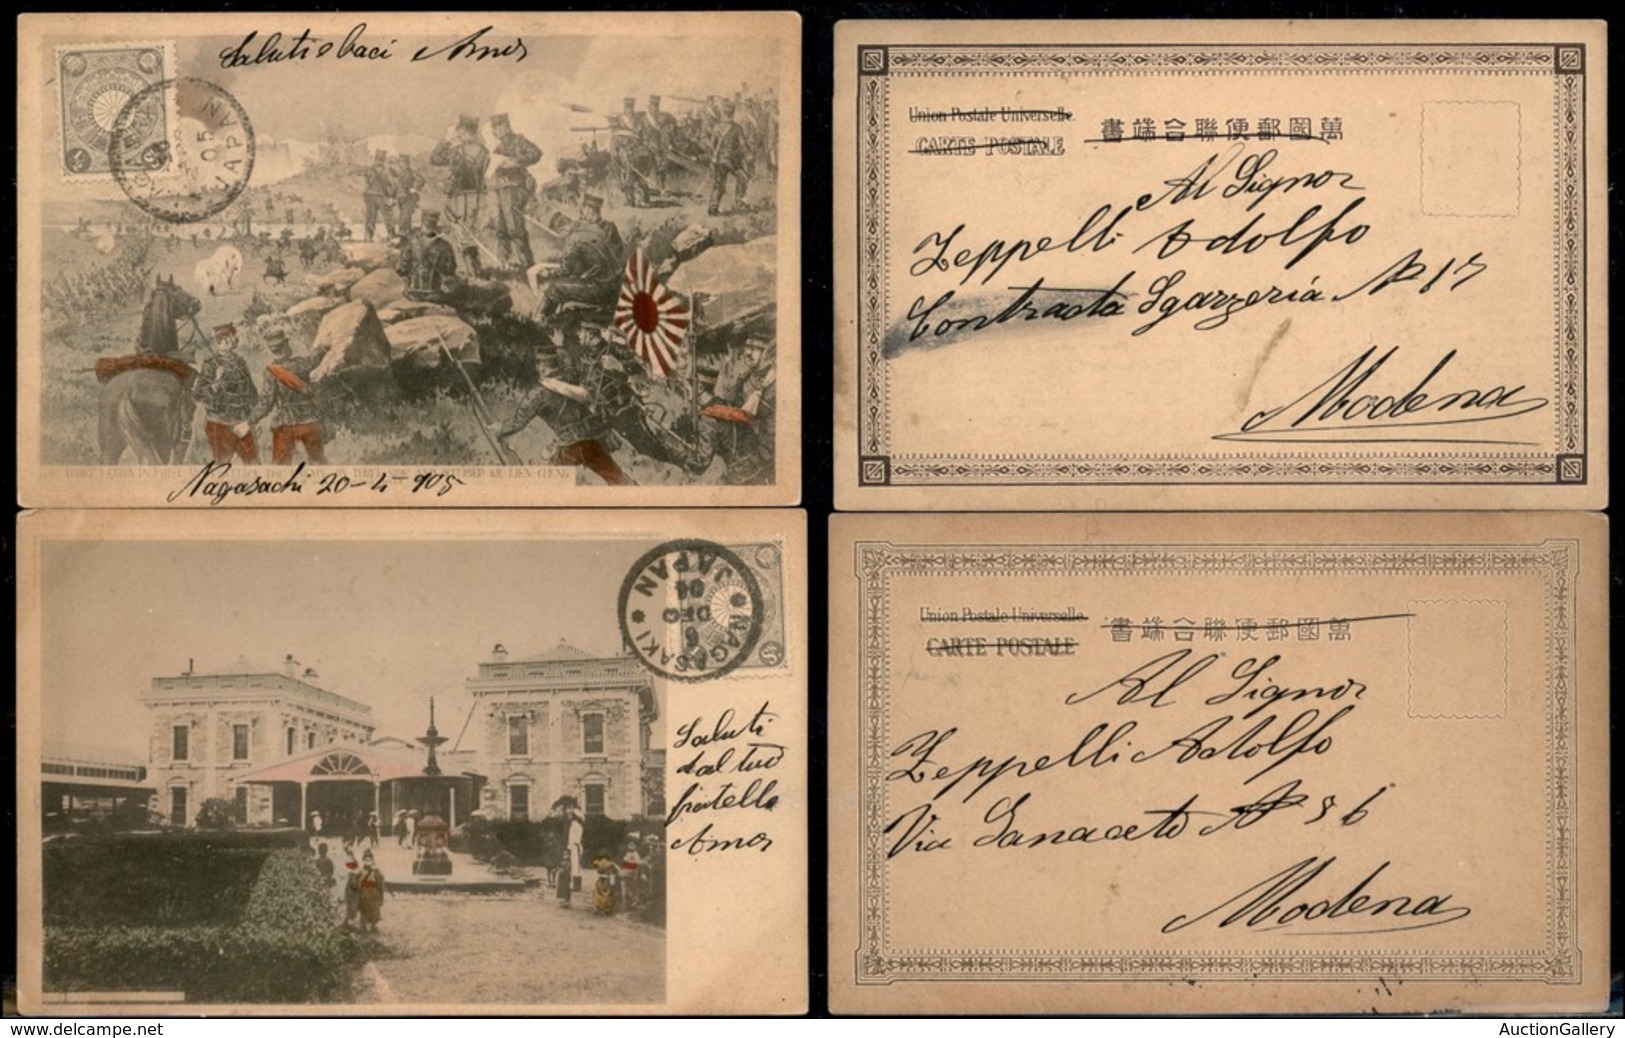 Saluti e baci Amos
NAGASAKI
20
APR
05
JAPAN
Nagasachi 20-4-905
Union Postale Universelle.
CARTE POSTALE
書端合聯便郵國萬
Al Signor
Zeppelli Adolfo
Contrada Sgarzeria N° 17
Modena
NAGASAKI
6
DEC
04
JAPAN
Saluti
dal tuo
fratello
Amos
Union Postale Universelle.
CARTE POSTALE
書端合聯便郵國萬
Al Signor
Zeppelli Adolfo
Via Ganaceto N° 36
Modena
www.delcampe.net
AuctionGallery